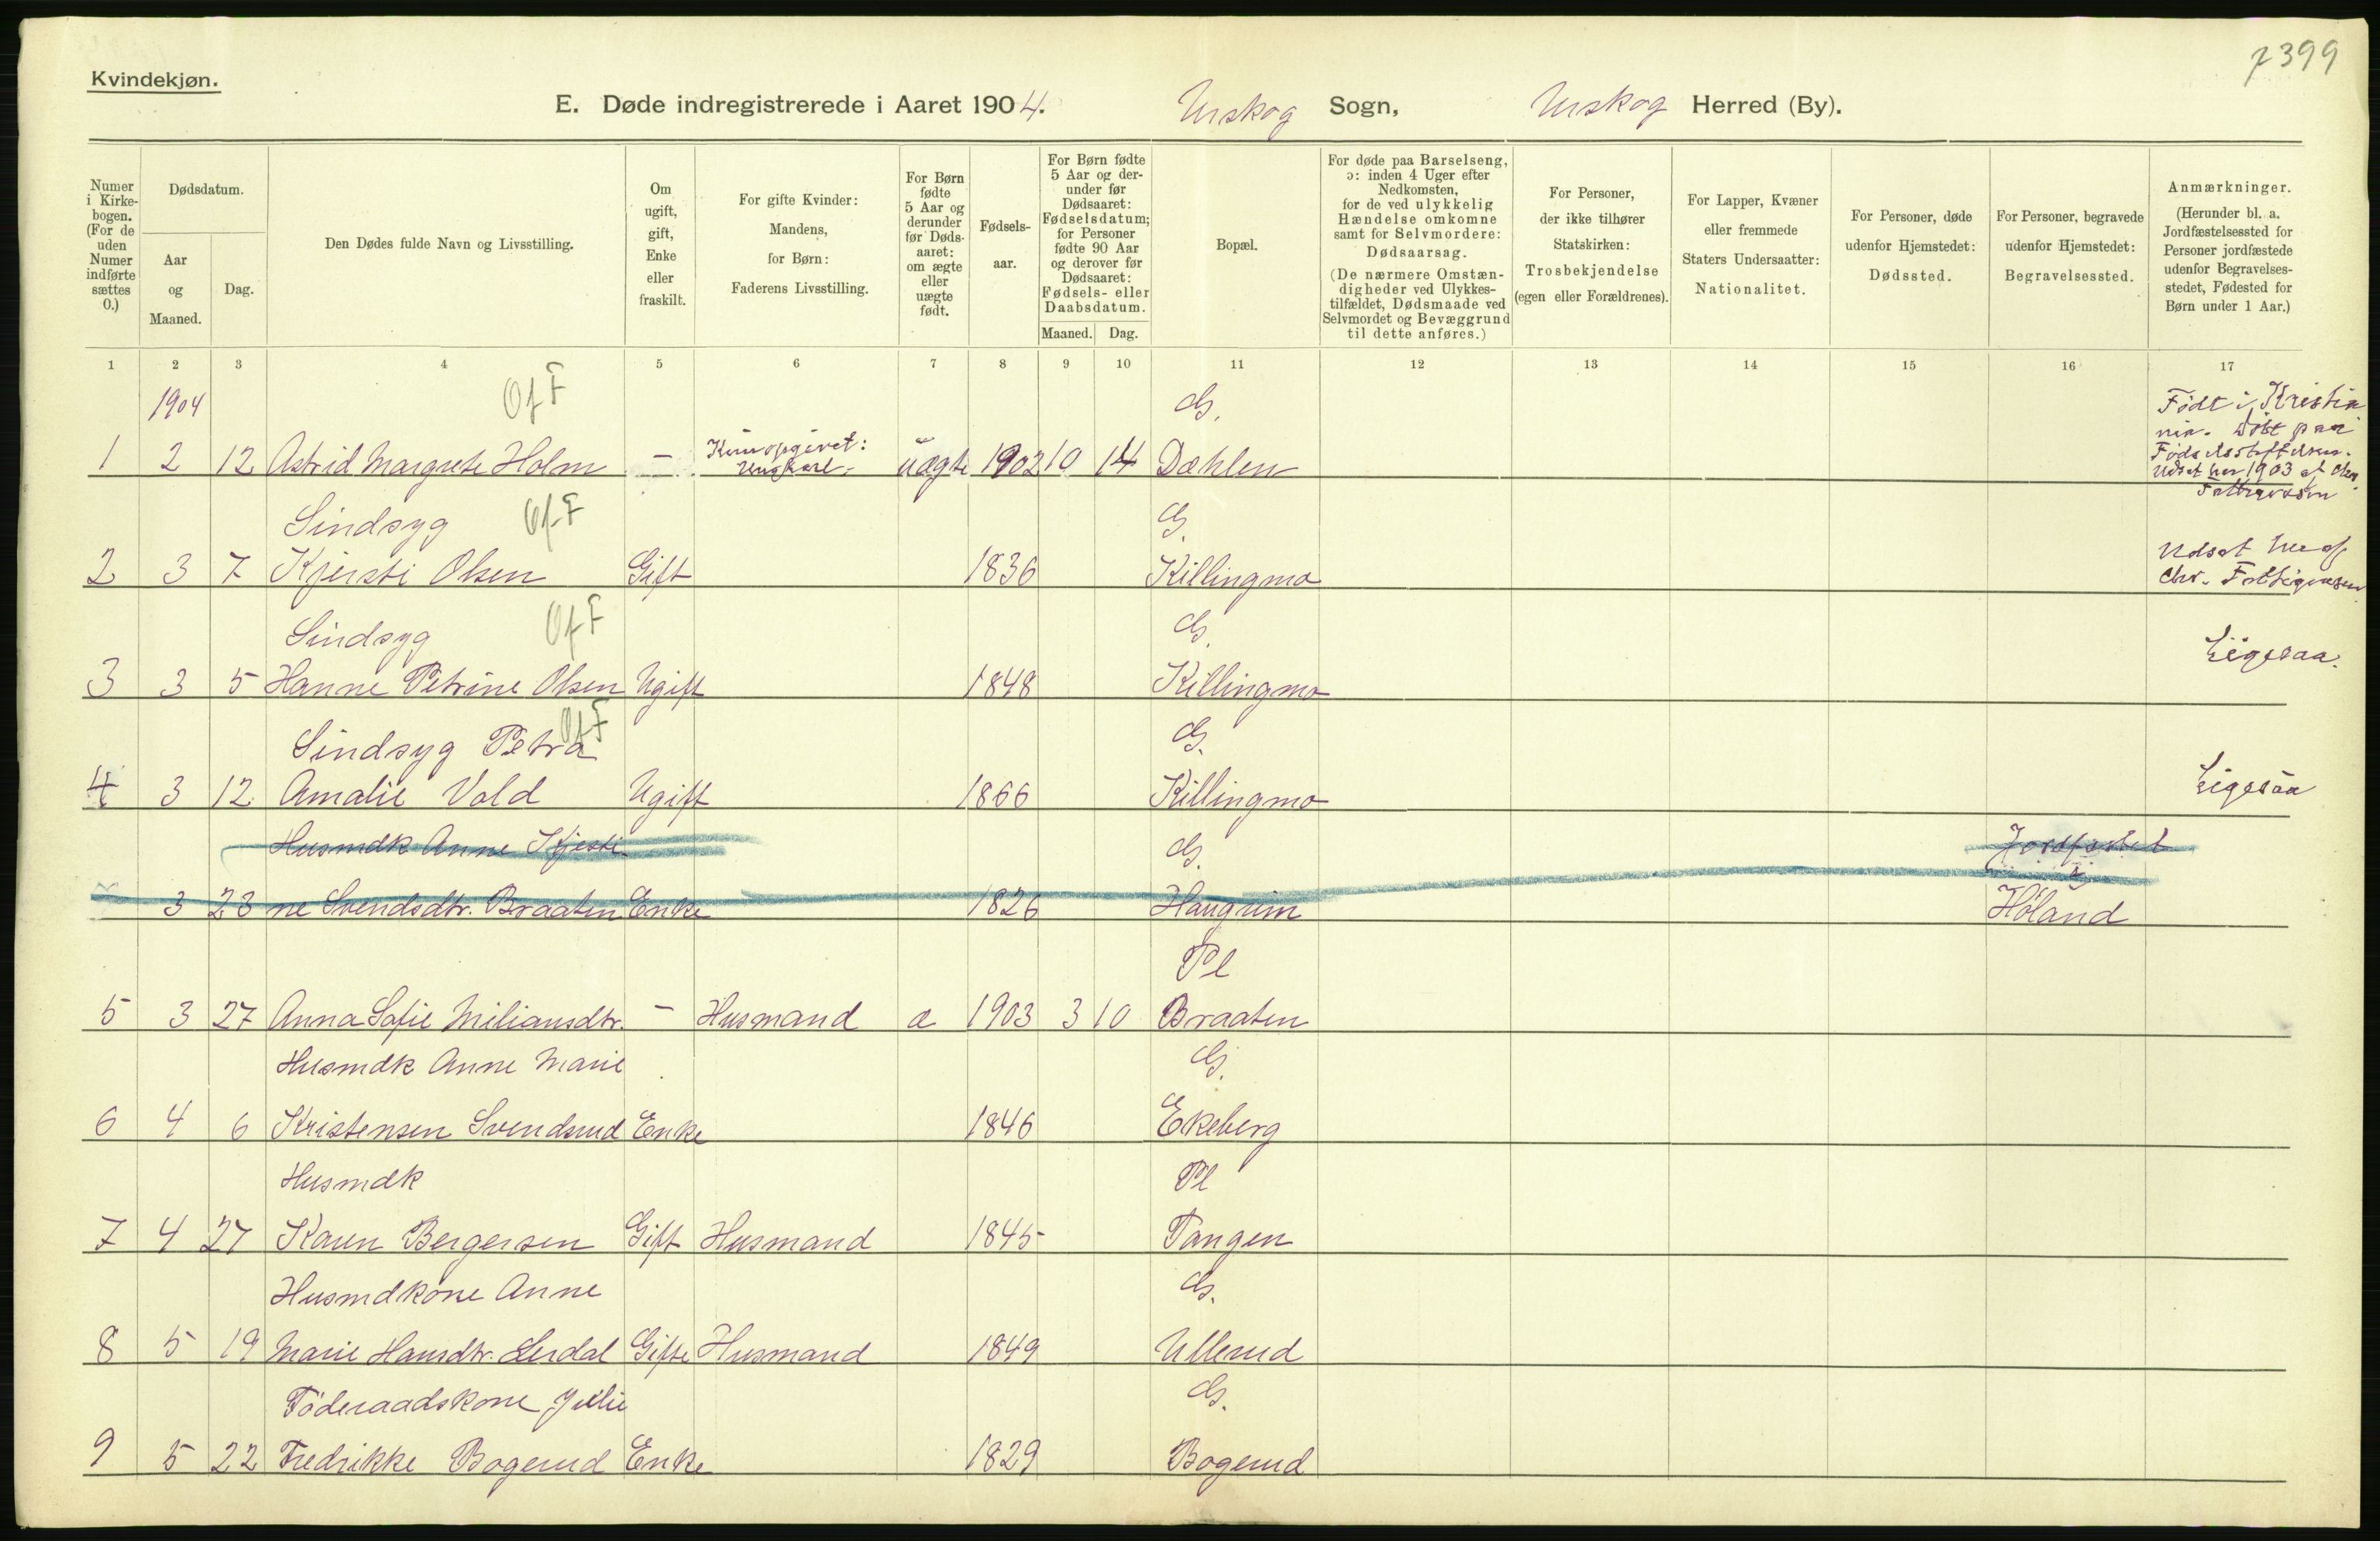 7399
Kvindekjøn.
E. Døde indregistrerede i Aaret 1904. Urskog Sogn, Urskog Herred (By).
Numer i Kirke-bogen. (For de uden Numer indførte sættes 0.)
Dødsdatum.
Aar og Maaned.
Dag.
Den Dødes fulde Navn og Livsstilling.
Om ugift, gift, Enke eller fraskilt.
For gifte Kvinder: Mandens, for Børn: Faderens Livsstilling.
For Børn fødte 5 Aar og derunder før Døds-aaret: om ægte eller uægte født.
Fødsels-aar.
For Børn fødte 5 Aar og der-under før Dødsaaret: Fødselsdatum; for Personer fødte 90 Aar og derover før Dødsaaret: Fødsels- eller Daabsdatum.
Maaned. Dag.
Bopæl.
For døde paa Barselseng, ɔ: inden 4 Uger efter Nedkomsten, for de ved ulykkelig Hændelse omkomne samt for Selvmordere: Dødsaarsag. (De nærmere Omstæn-digheder ved Ulykkes-tilfældet, Dødsmaade ved Selvmordet og Bevæggrund til dette anføres.)
For Personer, der ikke tilhører Statskirken: Trosbekjendelse (egen eller Forældrenes).
For Lapper, Kvæner eller fremmede Staters Undersaatter: Nationalitet.
For Personer, døde udenfor Hjemstedet: Dødssted.
For Personer, begravede udenfor Hjemstedet: Begravelsessted.
Anmærkninger. (Herunder bl. a. Jordfæstelsessted for Personer jordfæstede udenfor Begravelses-stedet, Fødested for Børn under 1 Aar.)
1 2 3 4 5 6 7 8 9 10 11 12 13 14 15 16 17
1904 Of F G. Født i Kristia
nia. Døbt paa
1 2 12 Astrid Margrete Holm — Ungkarl uægte 1902 10 14 Dæhlen Fødselsstiftelsen.
Udsat her 1903 af Chr.
Sindsyg Of F G.
2 3 7 Kjersti Olsen Gift 1836 Killingmo Udsat her af
Chr. Fattigvæsen
Sindsyg Of F G.
3 3 5 Hanne Petrine Olsen Ugift 1848 Killingmo Ligesaa.
Sindsyg Petra Of F G.
4 3 12 Amalie Vold Ugift 1866 Killingmo Ligesaa
Husmdk Anne Kjesti- G. Jordfæstet
i
3 23 ne Svendsdtr. Braaten Enke 1826 Haugrim Høland
Pl
5 3 27 Anna Sofie Miliansdtr. — Husmand æ 1903 3 10 Braaten
Husmdk Anne Marie G.
6 4 6 Kristensen Svendsrud Enke 1846 Ekeberg
Husmdk Pl
7 4 27 Karen Bergersen Gift Husmand 1845 Tangen
Husmdkone Anne G.
8 5 19 Marie Hansdtr. Lerdal Gifte Husmand 1849 Ullerud
Föderaadskone Julie G.
9 5 22 Fredrikke Bogerud Enke 1829 Bogerud